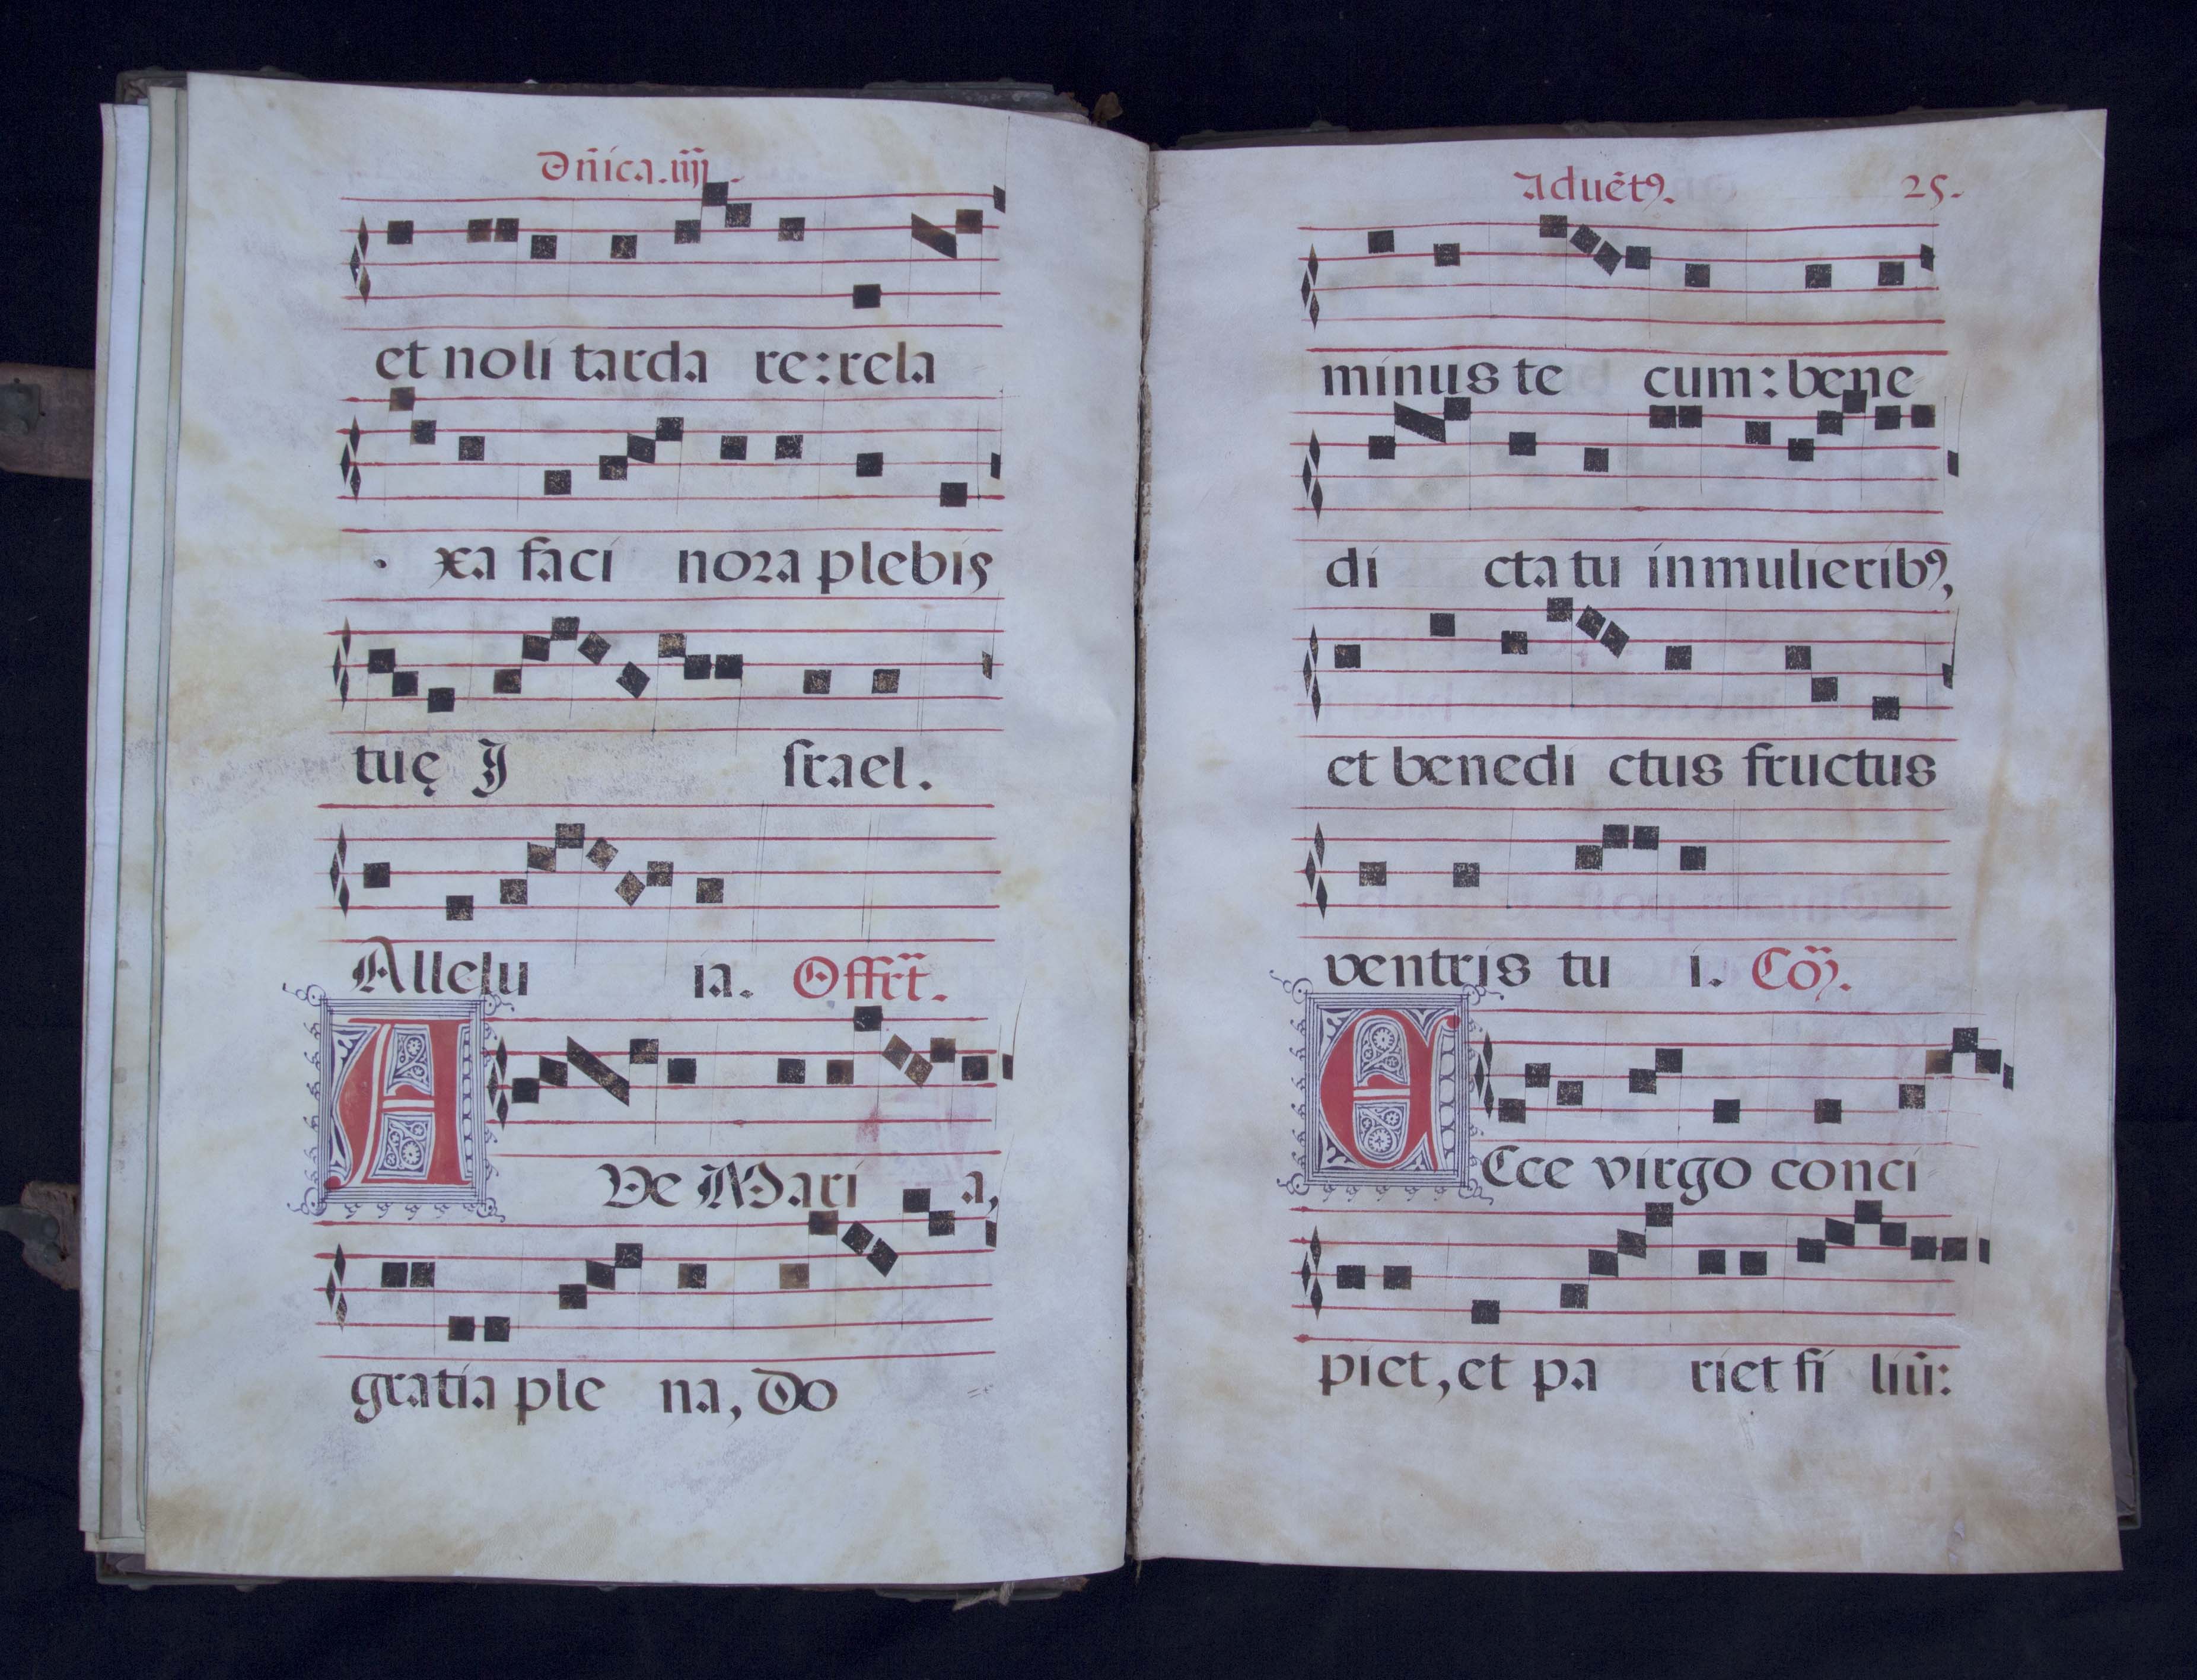 Dñica.iiij.
et noli tarda re: rela
xa faci nora plebis
tuę I srael.
Allelu ia. Offrt̃.
A Ve Mari a,
gratia ple na, Do
Aduẽtꝰ. 25.
minus te cum: bene
di cta tu in mulieribꝰ,
et benedi ctus fructus
ventris tu i. Cõ.
E Cce virgo conci
piet, et pa riet fi liũ: